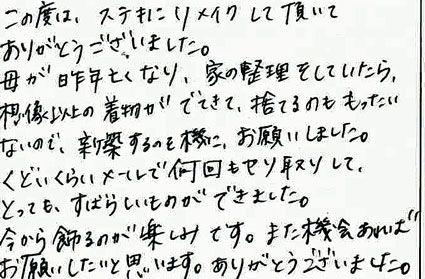 この度は、ステキにリメイクして頂いて
ありがとうございました。
母が昨年亡くなり、家の整理をしていたら、
想像以上の着物がでてきて、捨てるのももったい
ないので、新築するのを機に、お願いしました。
くどいくらいメールで何回もやり取りして、
とっても、すばらいものができました。
今から飾るのが楽しみです。また機会あれば
お願いしたいと思います。ありがとうございました。